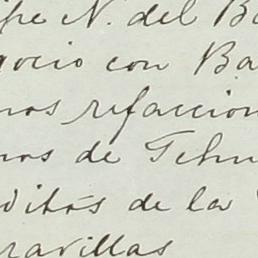 ipe N. del Ba
gocio con Ba
nos refaccion
nos de Tehu
ditos de la
ravillas